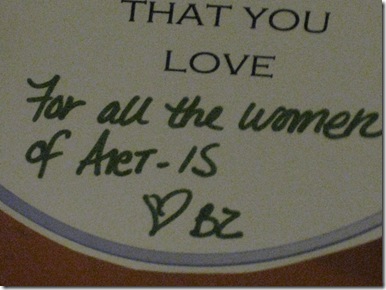 THAT YOU
LOVE
For all the women
of ART-IS
♡ BZ